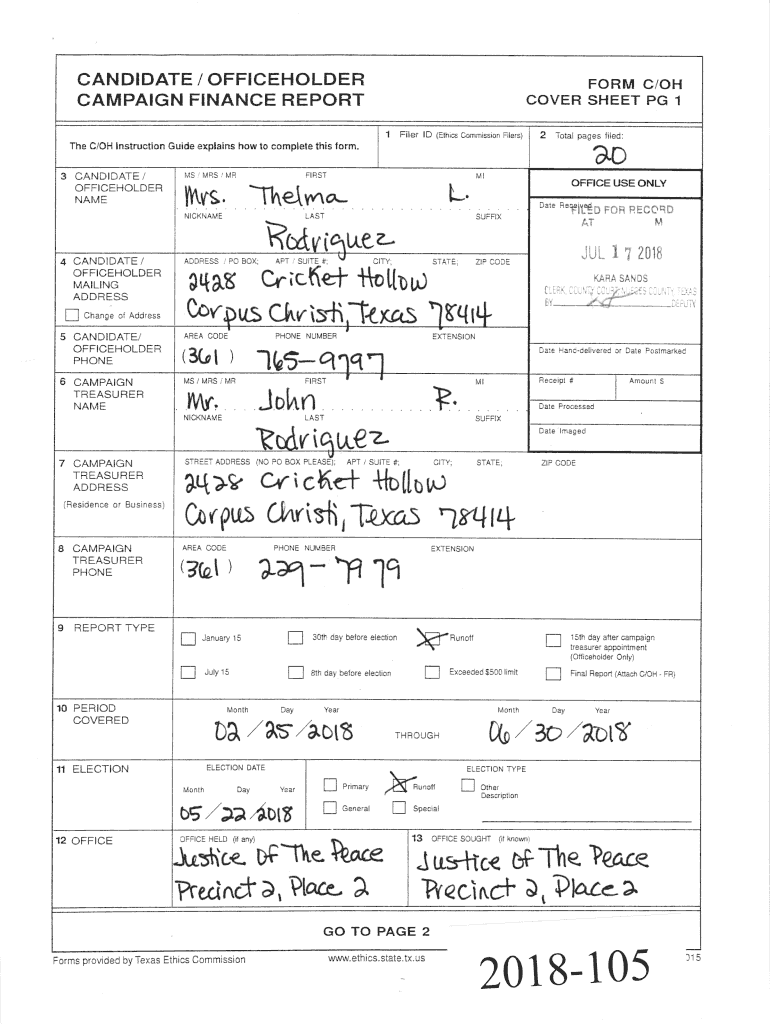 CANDIDATE / OFFICEHOLDER
CAMPAIGN FINANCE REPORT
FORM C/OH
COVER SHEET PG 1
The C/OH Instruction Guide explains how to complete this form.
1 Filer ID (Ethics Commission Filers)
2 Total pages filed:
20
3 CANDIDATE /
OFFICEHOLDER
NAME
MS / MRS / MR FIRST MI
Mrs. Thelma L.
NICKNAME LAST SUFFIX
Rodriguez
OFFICE USE ONLY
Date Received
FILED FOR RECORD
AT M
JUL 17 2018
KARA SANDS
CLERK COUNTY COURT NUECES COUNTY TEXAS
BY DEPUTY
4 CANDIDATE /
OFFICEHOLDER
MAILING
ADDRESS
Change of Address
ADDRESS / PO BOX; APT / SUITE #; CITY; STATE; ZIP CODE
2428 Cricket Hollow
Corpus Christi, Texas 78414
5 CANDIDATE/
OFFICEHOLDER
PHONE
AREA CODE PHONE NUMBER EXTENSION
(361) 765-9797
Date Hand-delivered or Date Postmarked
6 CAMPAIGN
TREASURER
NAME
MS / MRS / MR FIRST MI
Mr. John R.
NICKNAME LAST SUFFIX
Rodriguez
Receipt # Amount $
Date Processed
Date Imaged
7 CAMPAIGN
TREASURER
ADDRESS
(Residence or Business)
STREET ADDRESS (NO PO BOX PLEASE); APT / SUITE #; CITY; STATE; ZIP CODE
2428 Cricket Hollow
Corpus Christi, Texas 78414
8 CAMPAIGN
TREASURER
PHONE
AREA CODE PHONE NUMBER EXTENSION
(361) 229-7979
9 REPORT TYPE
January 15 30th day before election Runoff 15th day after campaign
treasurer appointment
(Officeholder Only)
July 15 8th day before election Exceeded $500 limit Final Report (Attach C/OH - FR)
10 PERIOD
COVERED
Month Day Year Month Day Year
02 / 25 / 2018 THROUGH 06 / 30 / 2018
11 ELECTION
ELECTION DATE
Month Day Year
05 / 22 / 2018
ELECTION TYPE
Primary Runoff Other
Description
General Special
12 OFFICE
OFFICE HELD (if any)
Justice Of The Peace
Precinct 2, Place 2
13 OFFICE SOUGHT (if known)
Justice Of The Peace
Precinct 2, Place 2
GO TO PAGE 2
Forms provided by Texas Ethics Commission www.ethics.state.tx.us 015
2018-105